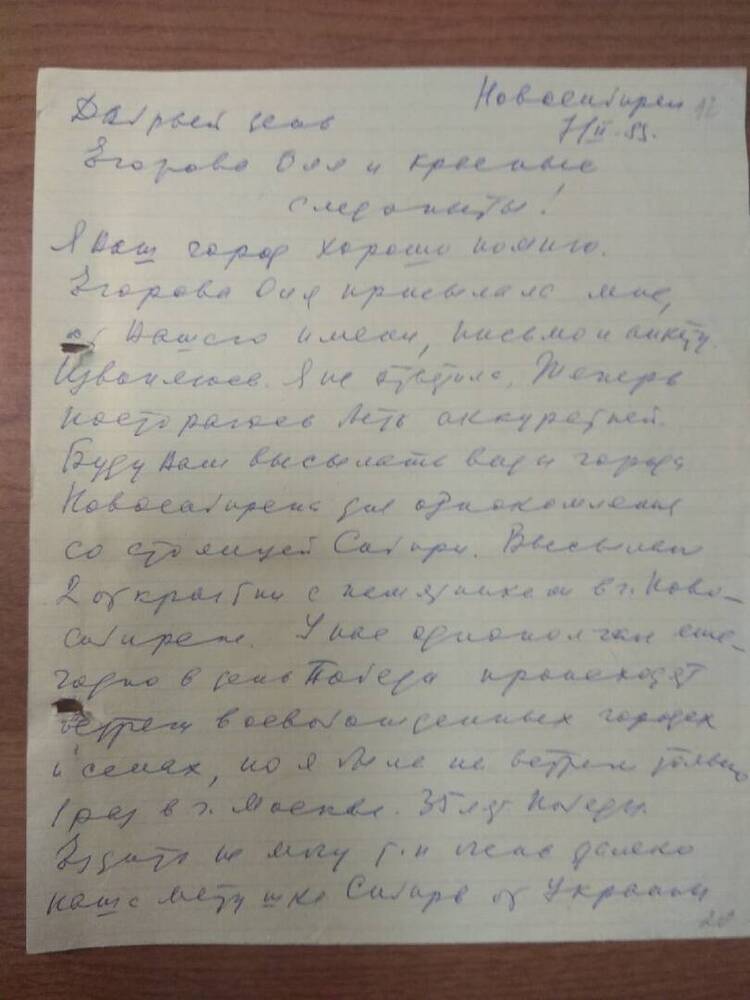 Новосибирск 12
Добрый день 7/II-83.
Егорова Оля и красные
следопыты!
Я Ваш город хорошо помню.
Егорова Оля присылала мне,
от Вашего имени, письмо и анкету.
Извиняюсь. Я не ответила. Теперь
постораюсь быть аккуратней.
Буду Вам высылать виды города
Новосибирска для ознакомления
со столицей Сибири. Высылаю
2 открытки с памятником в г. Ново-
сибирске. У нас однополчан еже-
годно в день Победы происходят
встречи в освобожденных городах
и селах, но я была на встрече только
1 раз в г. Москве. 35 лет Победы.
Ездить не могу т.к очень далеко
наша матушка Сибирь от Украины
20